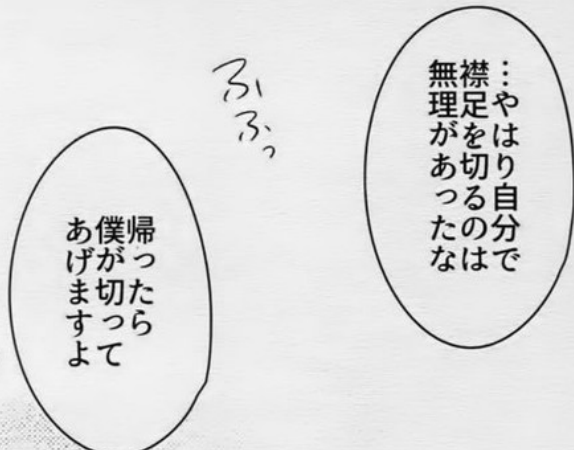 …やはり自分で
襟足を切るのは
無理があったな
ふふっ
帰ったら
僕が切って
あげますよ